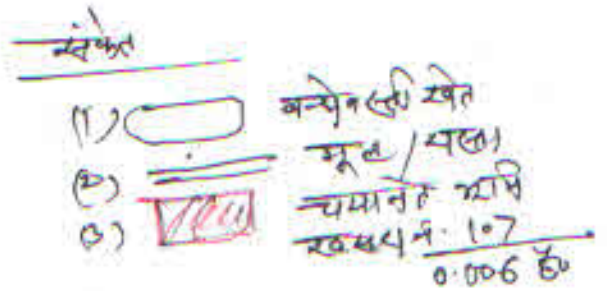 संकेत
(1) बन्दोबस्ती खेत
(2) मूल / रास्ता
(3) चयनित भूमि
खसरा नं. 107
0.006 है०